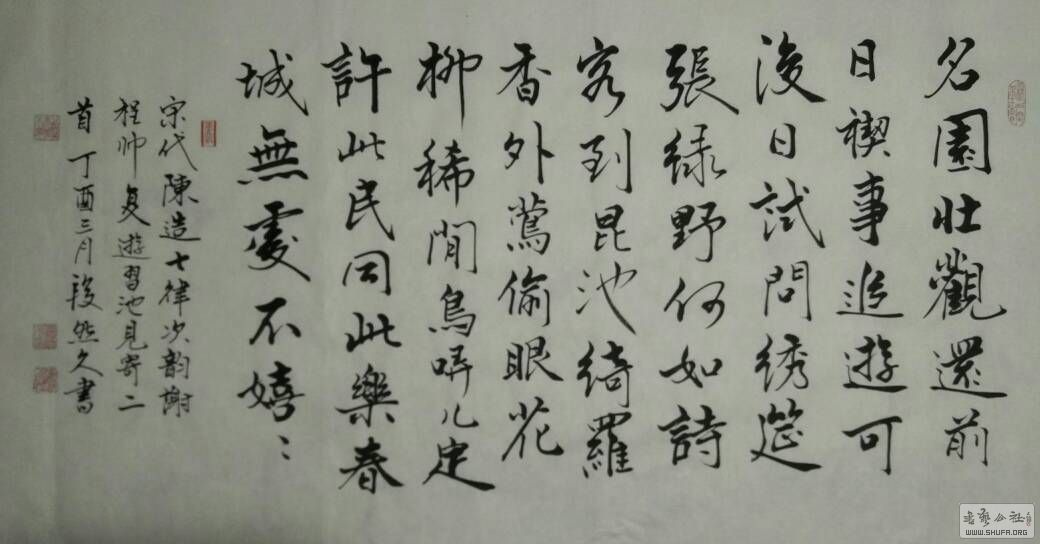 名園壯觀還前
日禊事追遊可
後日試問绣筵
張緑野何如詩
客到昆池綺羅
香外鶯偷眼花
柳稀間鳥哢儿定
許此民同此樂春
城無處不嬉〻
宋代陳造七律次韵謝
程帅复遊習池見寄二
首 丁酉三月段然久書
書藝公社
WWW.SHUFA.ORG